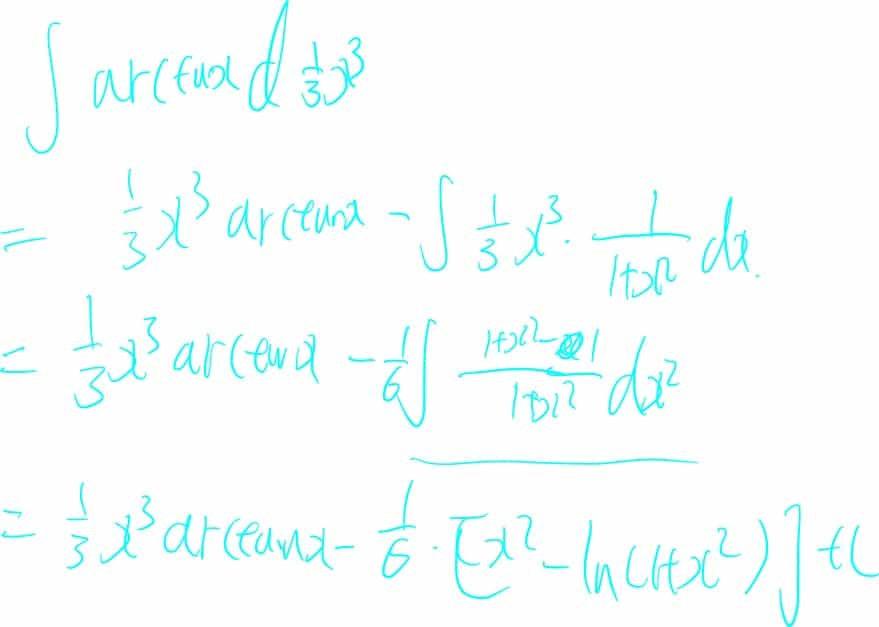 ∫ arctanx d 1/3 x³
= 1/3 x³ arctanx - ∫ 1/3 x³ · 1/(1+x²) dx.
= 1/3 x³ arctanx - 1/6 ∫ (1+x²-1)/(1+x²) dx²
= 1/3 x³ arctanx - 1/6 · [x² - ln(1+x²)] + C